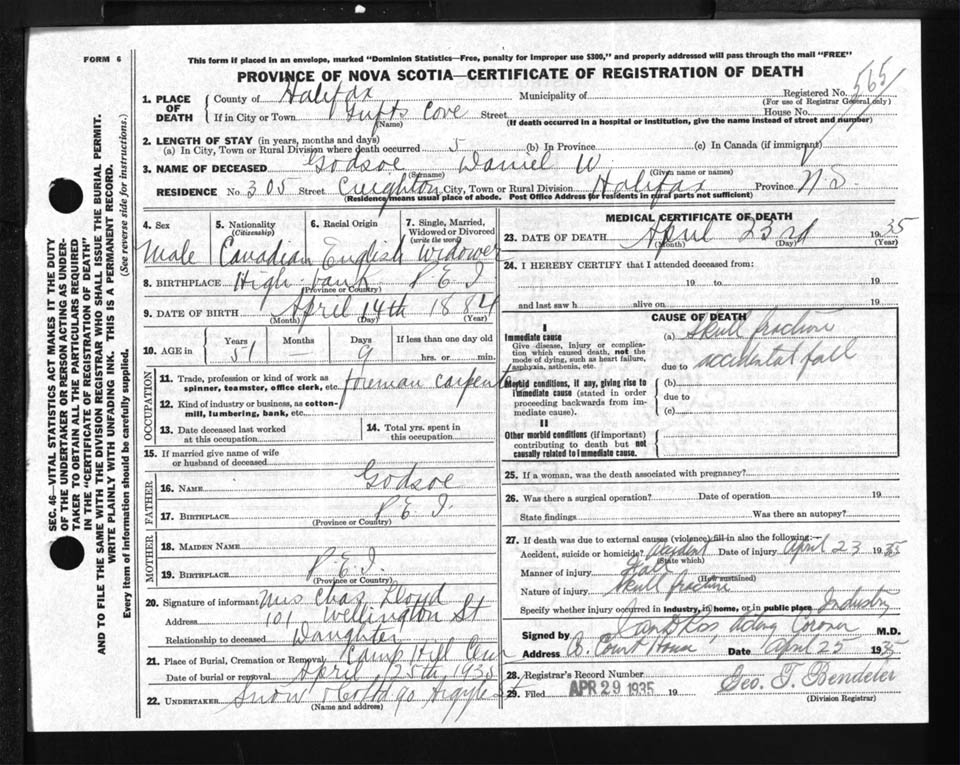 FORM 6
This form if placed in an envelope, marked "Dominion Statistics—Free, penalty for improper use $300," and properly addressed will pass through the mail "FREE"
PROVINCE OF NOVA SCOTIA—CERTIFICATE OF REGISTRATION OF DEATH
1. PLACE OF DEATH
County of Halifax Municipality of Registered No. 565
(For use of Registrar General only)
If in City or Town Tufts Cove Street House No.
(Name) (If death occurred in a hospital or institution, give the name instead of street and number)
2. LENGTH OF STAY (in years, months and days)
(a) In City, Town or Rural Division where death occurred 5 (b) In Province (c) In Canada (if immigrant)
3. NAME OF DECEASED Godsoe Daniel W.
(Surname) (Given name or names)
RESIDENCE No. 305 Street Creighton City, Town or Rural Division Halifax Province N S
(Residence means usual place of abode. Post Office Address for residents in rural parts not sufficient)
4. Sex 5. Nationality (Citizenship) 6. Racial Origin 7. Single, Married, Widowed or Divorced (write the word)
Male Canadian English Widower
8. BIRTHPLACE High bank P E I
(Province or Country)
9. DATE OF BIRTH April 14th 1884
(Month) (Day) (Year)
10. AGE in Years Months Days If less than one day old
51 — 9 hrs. or min.
OCCUPATION
11. Trade, profession or kind of work as spinner, teamster, office clerk, etc. foreman carpenter
12. Kind of industry or business, as cotton-mill, lumbering, bank, etc.
13. Date deceased last worked at this occupation
14. Total yrs. spent in this occupation
15. If married give name of wife or husband of deceased
FATHER
16. NAME Godsoe
17. BIRTHPLACE P E I
(Province or Country)
MOTHER
18. MAIDEN NAME
19. BIRTHPLACE P.E.I.
(Province or Country)
20. Signature of informant Mrs Chas Lloyd
Address 101 Wellington St
Relationship to deceased Daughter
21. Place of Burial, Cremation or Removal Camp Hill Cem
Date of burial or removal April 25th 1935
22. UNDERTAKER Snow & Co Ltd 90 Argyle
(Name and address)
MEDICAL CERTIFICATE OF DEATH
23. DATE OF DEATH April 23rd 1935
(Month) (Day) (Year)
24. I HEREBY CERTIFY that I attended deceased from:
19 to 19
and last saw h alive on 19
CAUSE OF DEATH
I
Immediate cause
Give disease, injury or complication which caused death, not the mode of dying, such as heart failure, asphyxia, asthenia, etc.
(a) Skull fracture
due to accidental fall
Morbid conditions, if any, giving rise to immediate cause (stated in order proceeding backwards from immediate cause).
(b)
due to
(c)
II
Other morbid conditions (if important) contributing to death but not causally related to immediate cause.
25. If a woman, was the death associated with pregnancy?
26. Was there a surgical operation? Date of operation 19
State findings Was there an autopsy?
27. If death was due to external causes (violence) fill in also the following:—
Accident, suicide or homicide? Accident Date of injury April 23 1935
(State which)
Manner of injury Fall
(How sustained)
Nature of injury Skull fracture
Specify whether injury occurred in industry, in home, or in public place Industry
Signed by Acting Coroner M.D.
Address Court House Date April 25 1935
28. Registrar's Record Number
29. Filed APR 29 1935 19 Geo. T. Bendeler
(Division Registrar)
SEC. 46—VITAL STATISTICS ACT MAKES IT THE DUTY
OF THE UNDERTAKER OR PERSON ACTING AS UNDER-
TAKER TO OBTAIN ALL THE PARTICULARS REQUIRED
IN THE "CERTIFICATE OF REGISTRATION OF DEATH"
AND TO FILE THE SAME WITH THE DIVISION REGISTRAR WHO SHALL ISSUE THE BURIAL PERMIT.
WRITE PLAINLY WITH UNFADING INK. THIS IS A PERMANENT RECORD.
Every item of information should be carefully supplied. (See reverse side for instructions.)